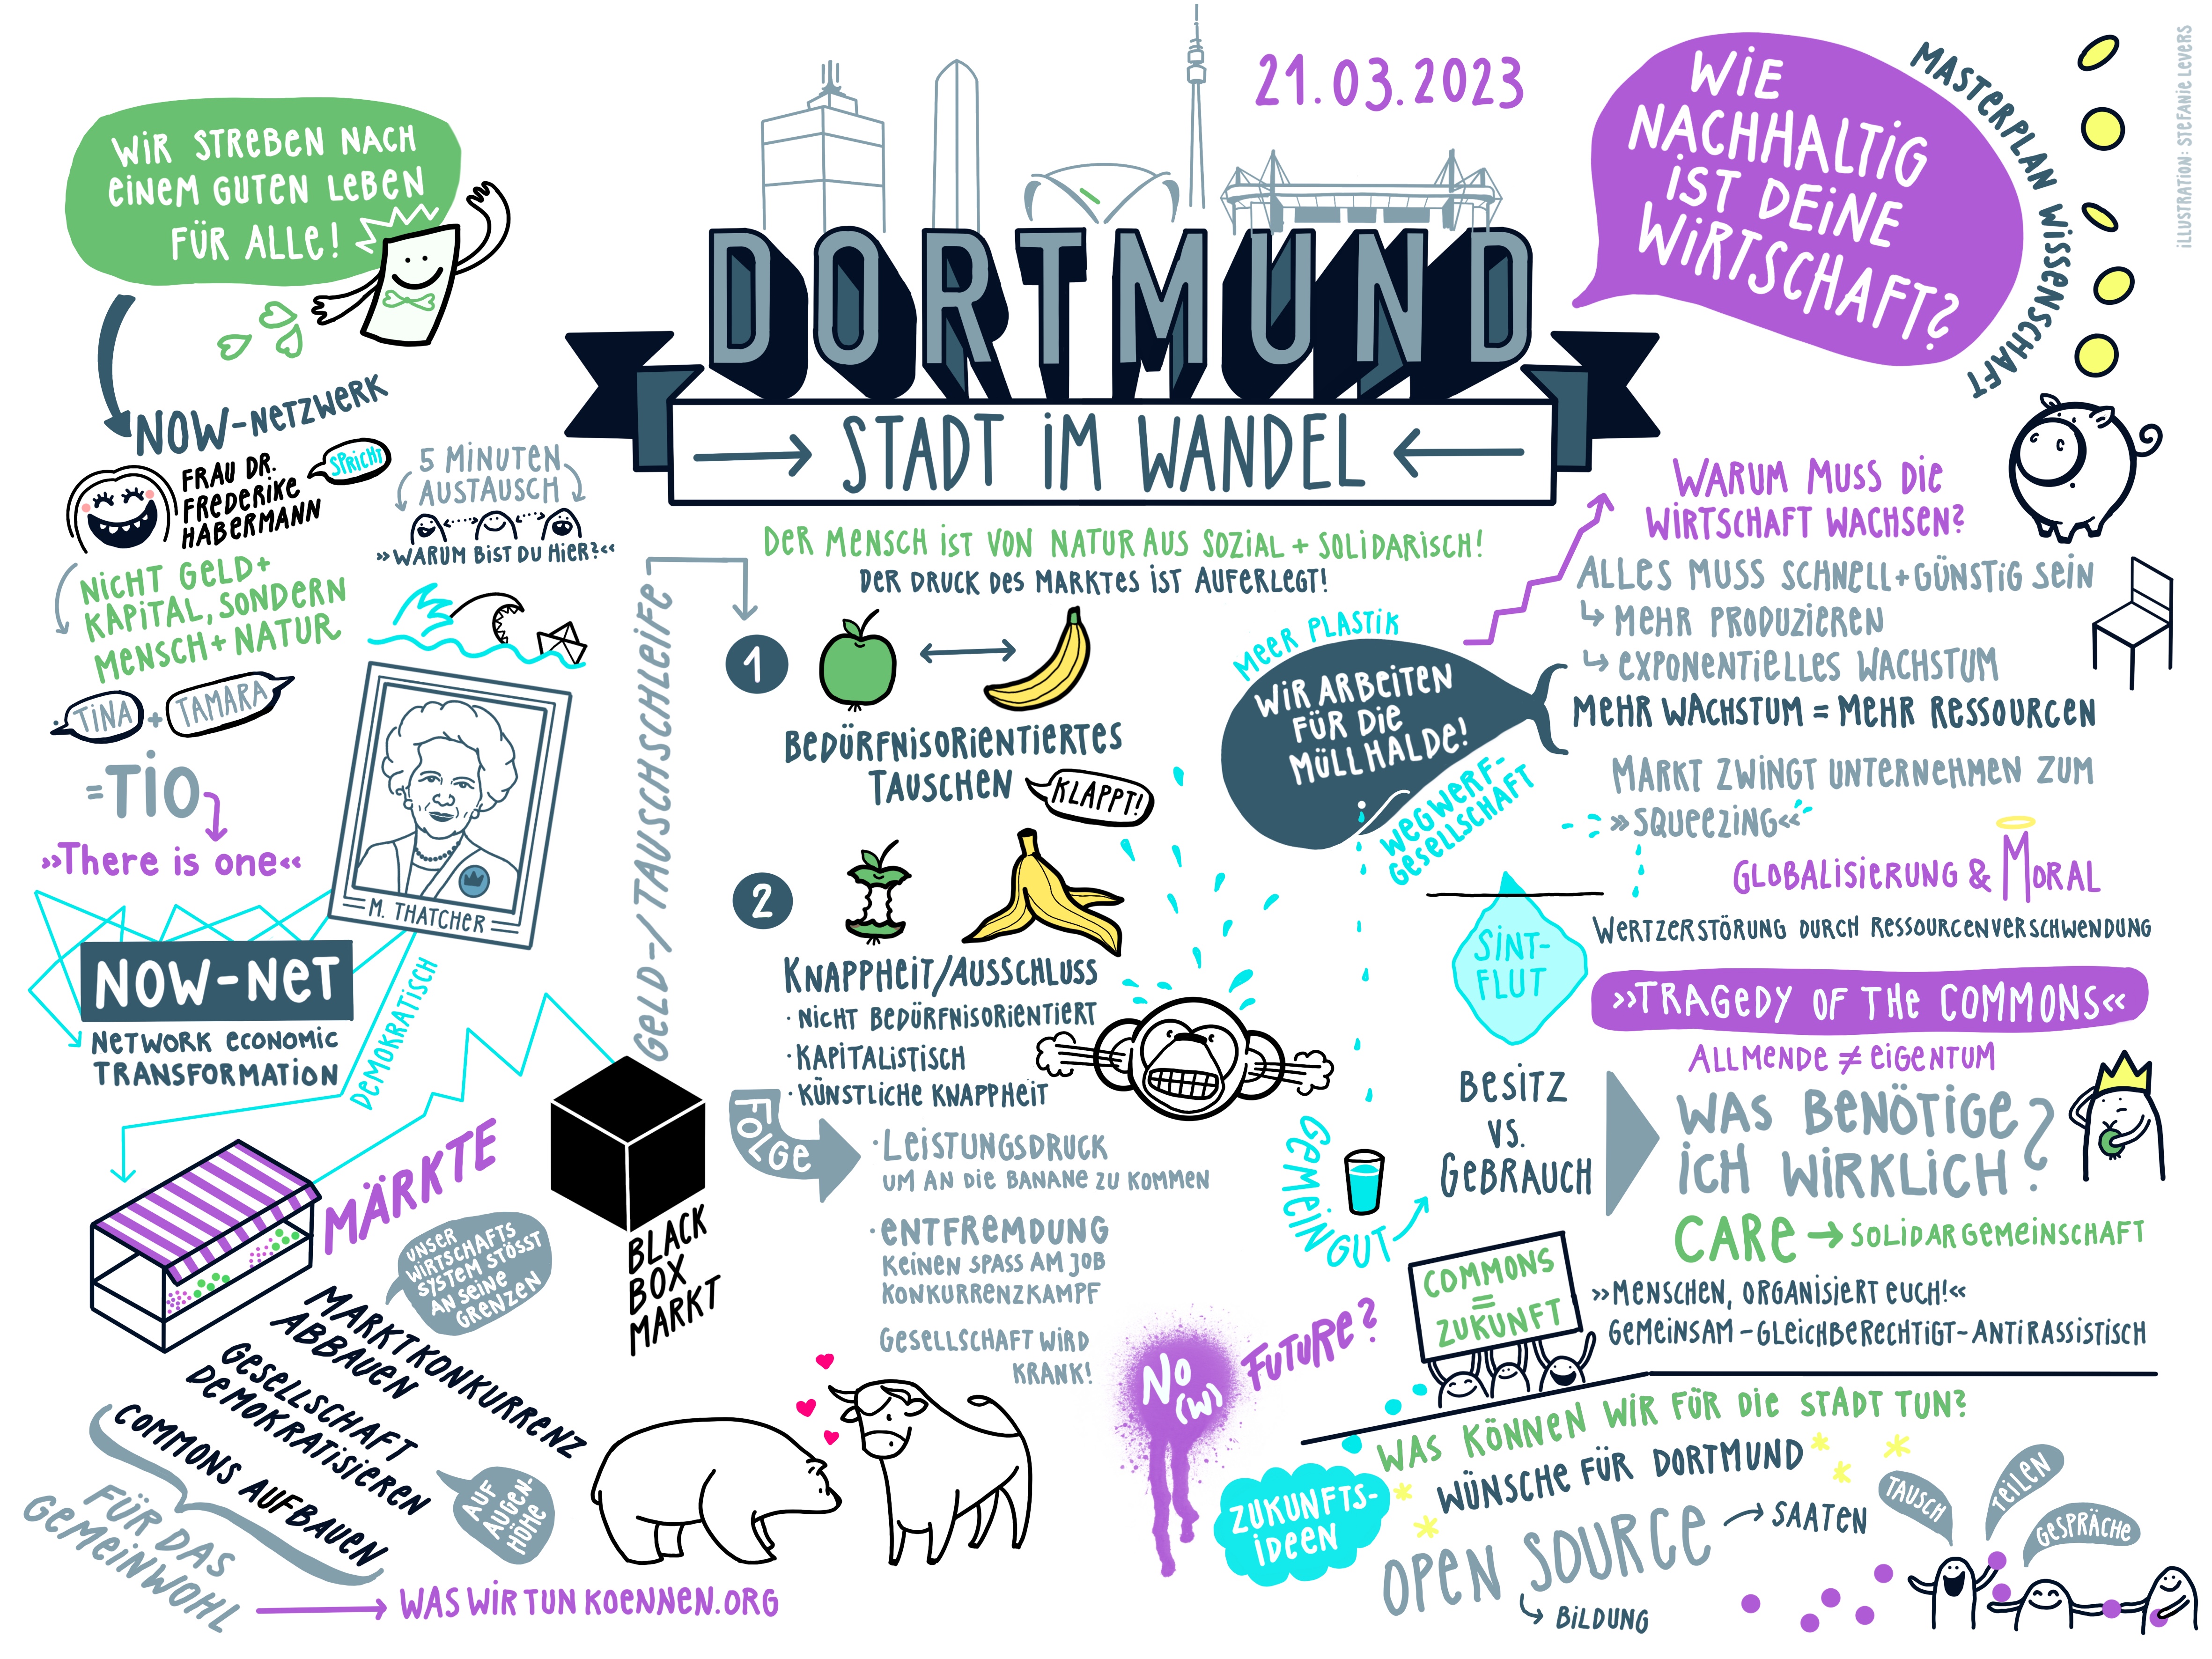 WIR STREBEN NACH
EINEM GUTEN LEBEN
FÜR ALLE!
NOW-NETZWERK
FRAU DR.
FREDERIKE
HABERMANN
SPRICHT
5 MINUTEN
AUSTAUSCH
»WARUM BIST DU HIER?«
NICHT GELD+
KAPITAL, SONDERN
MENSCH + NATUR
TINA + TAMARA
= TIO
»There is one«
M. THATCHER
NOW-NET
NETWORK ECONOMIC
TRANSFORMATION
DEMOKRATISCH
MÄRKTE
UNSER
WIRTSCHAFTS
SYSTEM STÖSST
AN SEINE
GRENZEN
MARKTKONKURRENZ
ABBAUEN
GESELLSCHAFT
DEMOKRATISIEREN
COMMONS AUFBAUEN
AUF
AUGEN-
HÖHE
FÜR DAS
GEMEINWOHL
WAS WIR TUN KOENNEN.ORG
21.03.2023
DORTMUND
STADT IM WANDEL
DER MENSCH IST VON NATUR AUS SOZIAL + SOLIDARISCH!
DER DRUCK DES MARKTES IST AUFERLEGT!
GELD-/TAUSCHSCHLEIFE
1
BEDÜRFNISORIENTIERTES
TAUSCHEN
KLAPPT!
2
KNAPPHEIT/AUSSCHLUSS
· NICHT BEDÜRFNISORIENTIERT
· KAPITALISTISCH
· KÜNSTLICHE KNAPPHEIT
FOLGE
· LEISTUNGSDRUCK
UM AN DIE BANANE ZU KOMMEN
· ENTFREMDUNG
KEINEN SPASS AM JOB
KONKURRENZKAMPF
GESELLSCHAFT WIRD
KRANK!
BLACK
BOX
MARKT
MEER PLASTIK
WIR ARBEITEN
FÜR DIE
MÜLLHALDE!
WEGWERF-
GESELLSCHAFT
WIE
NACHHALTIG
IST DEINE
WIRTSCHAFT?
MASTERPLAN WISSENSCHAFT
ILLUSTRATION: STEFANIE LEVERS
WARUM MUSS DIE
WIRTSCHAFT WACHSEN?
ALLES MUSS SCHNELL+GÜNSTIG SEIN
MEHR PRODUZIEREN
EXPONENTIELLES WACHSTUM
MEHR WACHSTUM = MEHR RESSOURCEN
MARKT ZWINGT UNTERNEHMEN ZUM
»SQUEEZING«
GLOBALISIERUNG & MORAL
WERTZERSTÖRUNG DURCH RESSOURCENVERSCHWENDUNG
SINT-
FLUT
»TRAGEDY OF THE COMMONS«
ALLMENDE ≠ EIGENTUM
GEMEINGUT
BESITZ
VS.
GEBRAUCH
WAS BENÖTIGE
ICH WIRKLICH?
CARE → SOLIDARGEMEINSCHAFT
»MENSCHEN, ORGANISIERT EUCH!«
GEMEINSAM-GLEICHBERECHTIGT-ANTIRASSISTISCH
COMMONS
=
ZUKUNFT
NO
(W)
FUTURE?
WAS KÖNNEN WIR FÜR DIE STADT TUN?
WÜNSCHE FÜR DORTMUND
ZUKUNFTS-
IDEEN
OPEN SOURCE
SAATEN
BILDUNG
TAUSCH
TEILEN
GESPRÄCHE